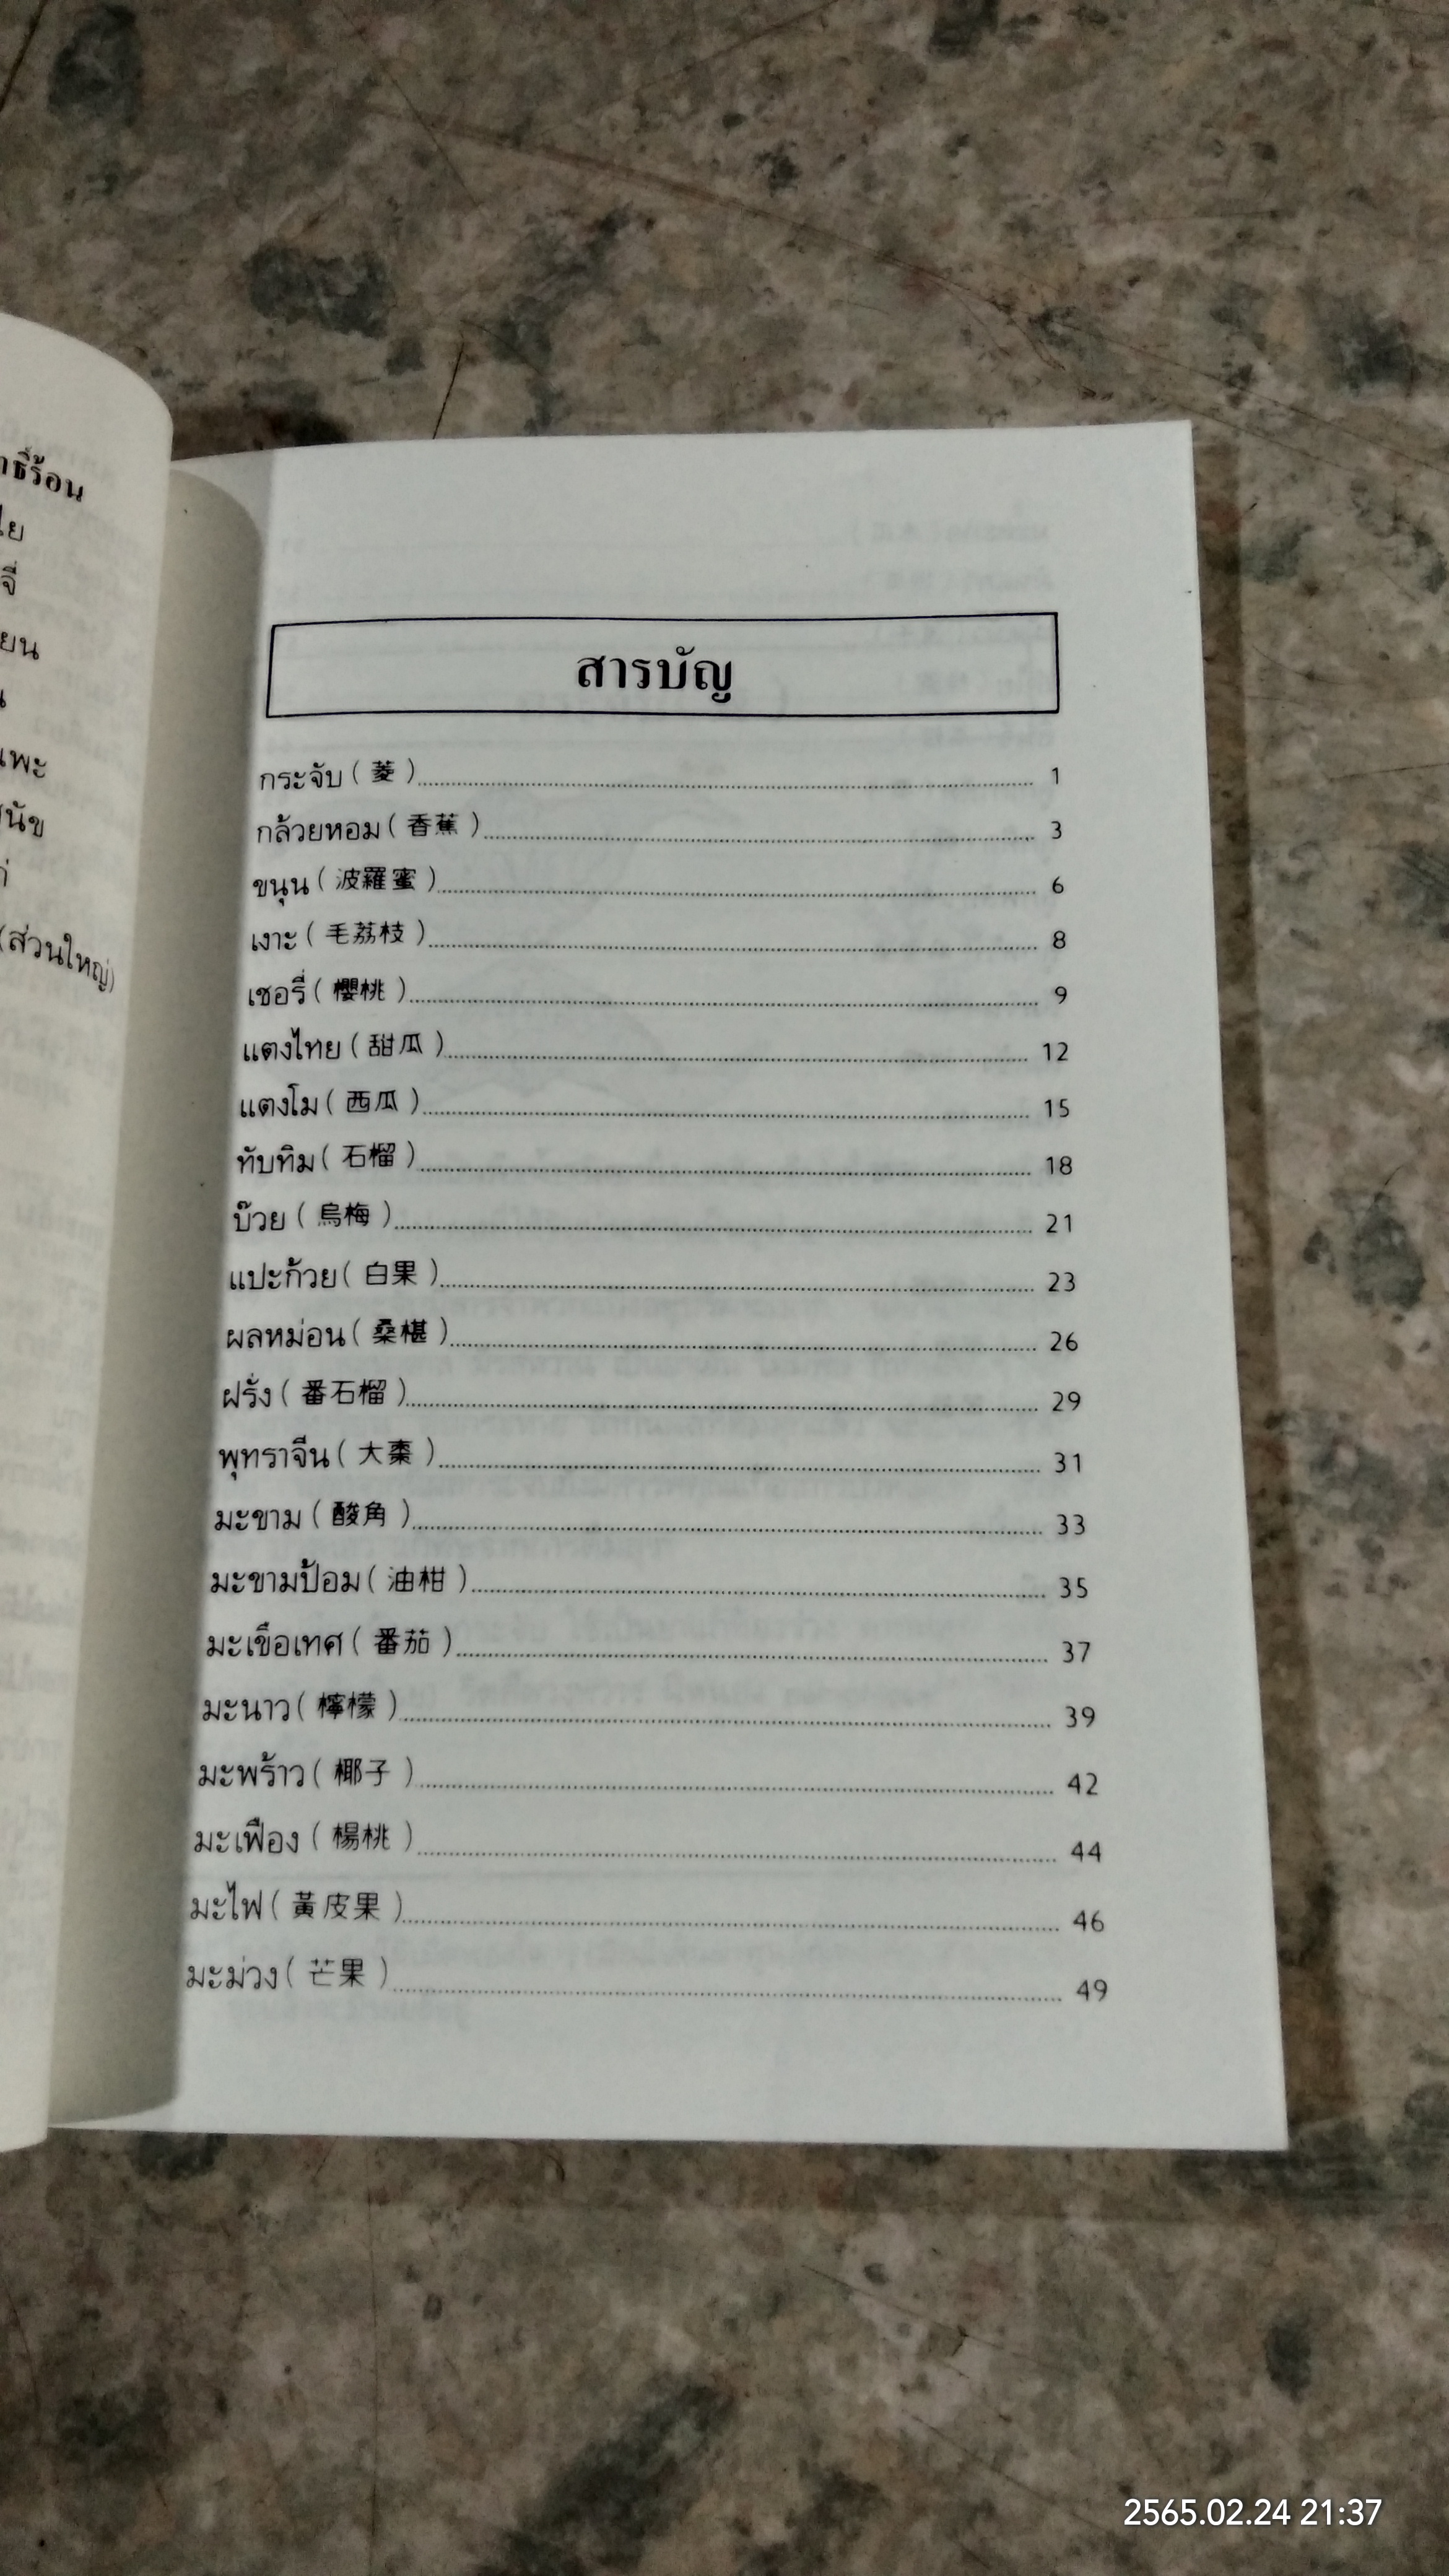 าธิ์ร้อน
สารบัญ
กระจับ ( 菱 ) 1
กล้วยหอม ( 香蕉 ) 3
ขนุน ( 波羅蜜 ) 6
เงาะ ( 毛荔枝 ) 8
เชอรี่ ( 櫻桃 ) 9
แตงไทย ( 甜瓜 ) 12
แตงโม ( 西瓜 ) 15
ทับทิม ( 石榴 ) 18
บ๊วย ( 烏梅 ) 21
แปะก้วย ( 白果 ) 23
ผลหม่อน ( 桑椹 ) 26
ฝรั่ง ( 番石榴 ) 29
พุทราจีน ( 大棗 ) 31
มะขาม ( 酸角 ) 33
มะขามป้อม ( 油柑 ) 35
มะเขือเทศ ( 番茄 ) 37
มะนาว ( 檸檬 ) 39
มะพร้าว ( 椰子 ) 42
มะเฟือง ( 楊桃 ) 44
มะไฟ ( 黃皮果 ) 46
มะม่วง ( 芒果 ) 49
(ส่วนใหญ่)
2565.02.24 21:37